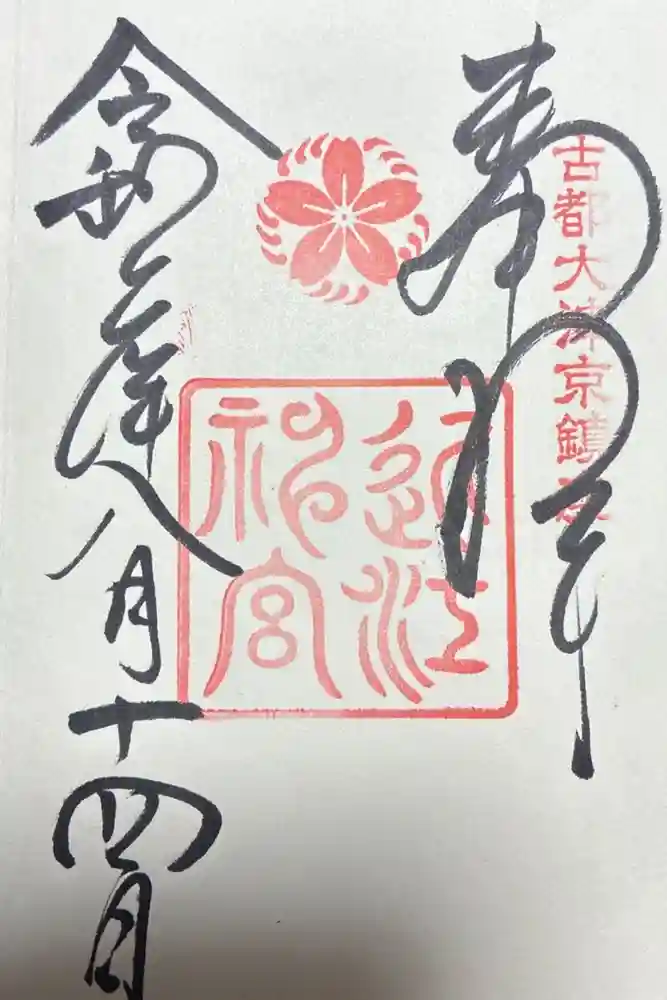 古都大津京鎮座
奉拝
近江
神宮
令和
年八月十四日